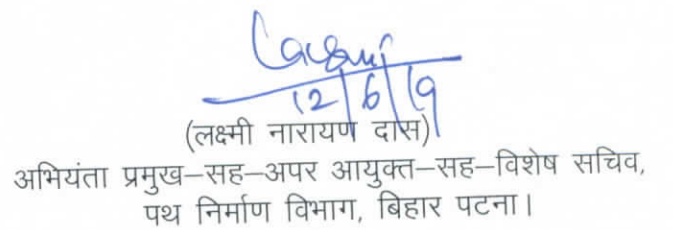 Laxmi
12/6/19
(लक्ष्मी नारायण दास)
अभियंता प्रमुख–सह–अपर आयुक्त–सह–विशेष सचिव,
पथ निर्माण विभाग, बिहार पटना।